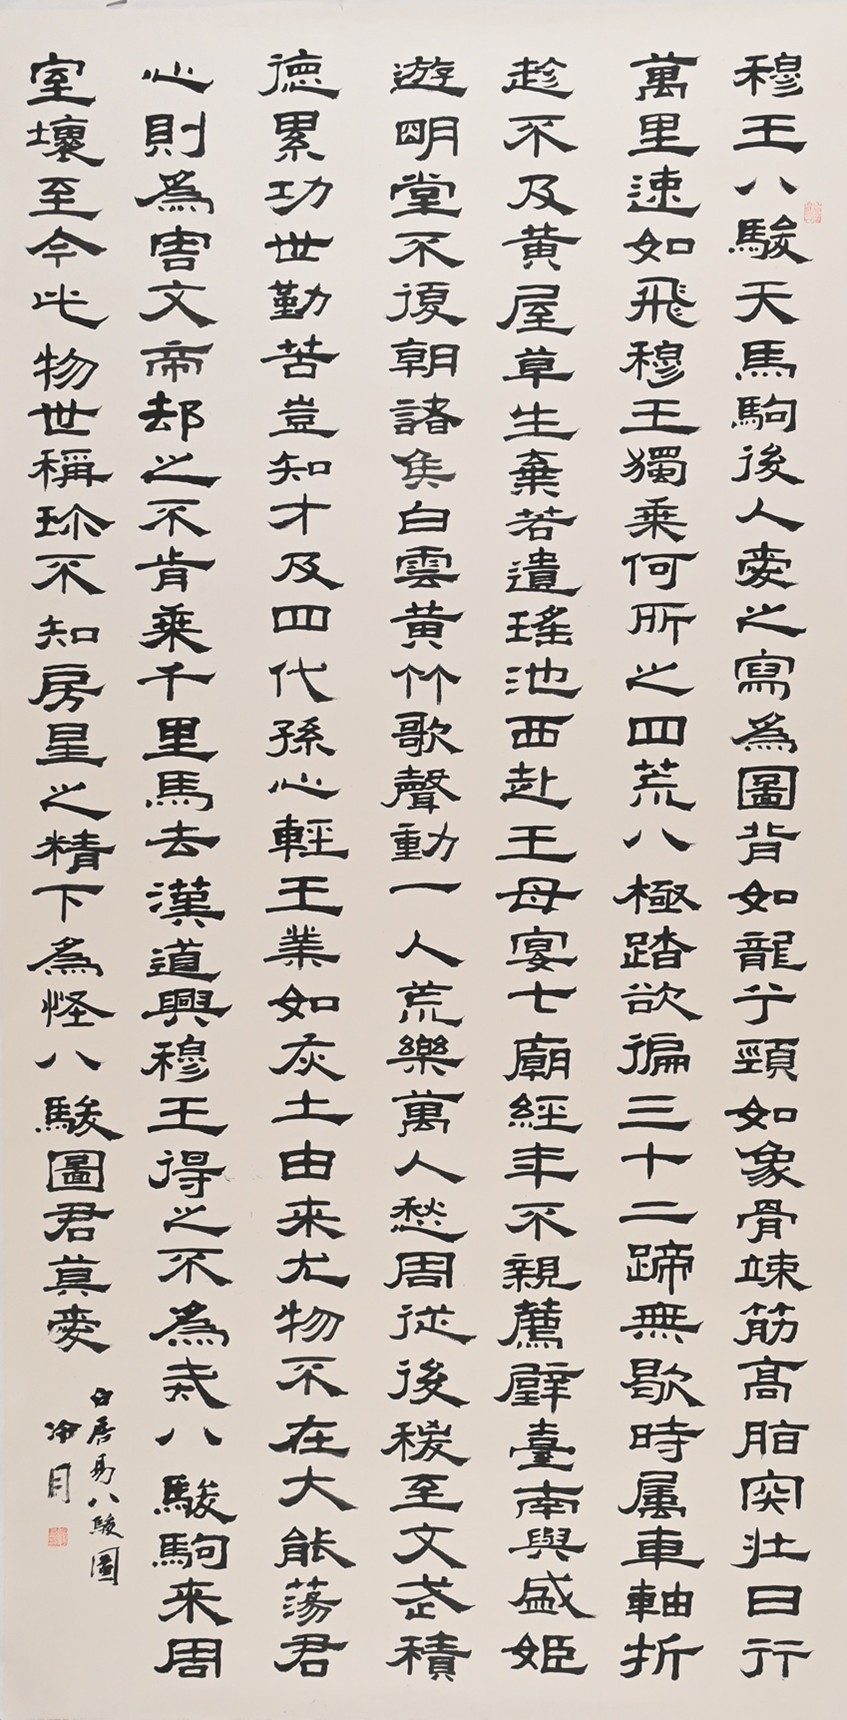 穆王八駿天馬駒後人愛之寫為圖背如龍兮頸如象骨竦筋高脂突壯日行
萬里速如飛穆王獨乗何所之四荒八極踏欲徧三十二蹄無歇時属車軸折
趁不及黃屋草生棄若遺瑤池西赴王母宴七廟經年不親薦璧臺南與盛姬
遊明堂不復朝諸矦白雲黃竹歌聲動一人荒樂萬人愁周従後稷至文武積
德累功世勤苦豈知才及四代孫心輕王業如灰土由来尤物不在大能蕩君
心則為害文帝却之不肯乗千里馬去漢道興穆王得之不為戒八駿駒来周
室壞至今此物世稱珎不知房星之精下為怪八駿圖君莫愛
白居易八駿圖
冷月